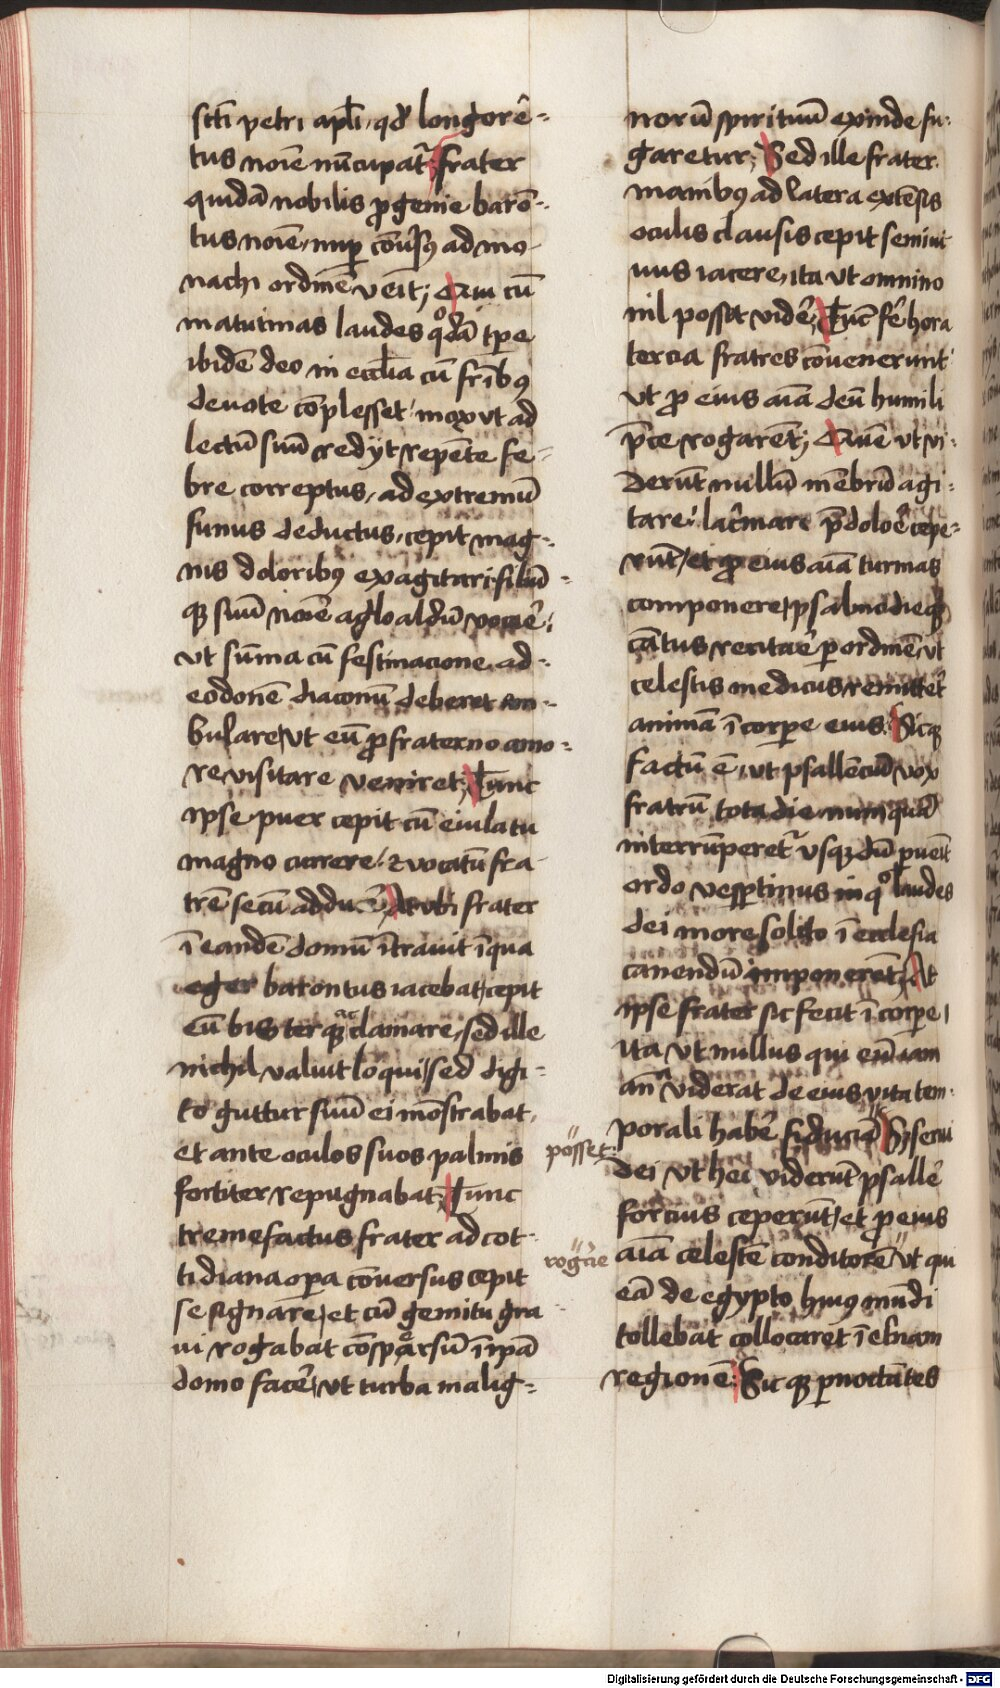 scti petri apli, qd longorē-
tus noīe nūcupatr; frater
quidā nobilis progenie barō-
tus noīe, nup cōusꝰ ad mo-
nachi ordinē veīt; Qui cū
matutinas laudes qodā tpe
ibidē deo in ecclia cū frībꝰ
deuote cōplesset, mox vt ad
lectū suū redijt repēte fe-
bre correptus, ad extremū
funus deductus, cepit mag-
nis doloribꝰ exagitari. filiū-
qꝫ suū noīe agloaldū vocāe,
vt sūma cū festinacione ad-
eodonē diaconū deberet am-
bulare, vt eū pro fraterno amo-
re visitare veniret; Tunc
ipse puer cepit cū eiulatu
magno currere, & vocatū fra-
trē secū adducē; At vbi frater
ī eandē domū ītrauit īqua
eger barontus iacebat, cepit
eū bis terqꝫ acclamare, sed ille
nichil valuit loqui, sed digi-
to guttur suū ei mōstrabat,
et ante oculos suos palmis
fortiter repugnabat; Tunc
tremefactus frater ad cot-
tidiana opa cōuersus cepit
se signare, et cū gemitu gra
ui rogabat cōspaersū ī ipā
domo facē, vt turba malig-
norū spirituū exinde fu-
garetur; Sed ille frater
manibꝰ ad latera extēsis
oculis clausis cepit semiui
uus iacere, ita vt omnino
nil posset vidē; Tūc fē hora
tercia fratres cōuenerunt
vt pro eius aīa deū humili
pce rogarēt; Quē vt vi-
derūt nullū mēbrū agi-
tare, lacrmare p doloē cepe-
rūt, et pro eius aīa turmas
componere, psalmodieqꝫ
cātus recitāe p ordinē, vt
celestis medicus remittēt
animā ī corpe eius; Sicqꝫ
factū ē, vt psallēciū vox
fratrū tota die numquā
interrūperetr vsqꝫ dū pueīt
ordo vesptinus in qo laudes
dei more solito ī ecclesia
canendū imponerēt; At
ipse frater sic fecit ī corpe,
ita vt nullus qui eū iam
anª viderat de eius vita tem-
porali habē fiduciā" Hij serui
posset.
dei vt hec viderūt psallē
forcius ceperūt, et p eius
rogāe aīam celestē conditorē" vt qui
eā de egypto huiꝰ mūdi
tollebat collocaret ī etnam
regionē; Sic qꝫ pnoctātes
Digitalisierung gefördert durch die Deutsche Forschungsgemeinschaft - DFG